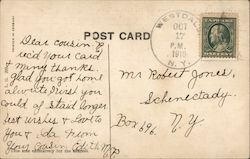 POST CARD
WESTDALE
OCT
17
P.M.
N.Y.
Dear cousin
rec'd your card
many thanks
glad you got home
alright wish you
could of staid longer
best wishes & Love to
you & Ida From
Your Cousin
Mr Robert Jones,
Schenectady
Box 696. N.Y